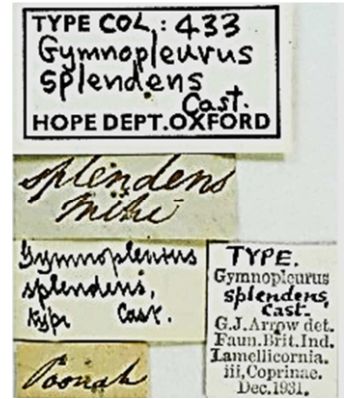 TYPE COL.: 433
Gymnopleurus
splendens
Cast.
HOPE DEPT.OXFORD
splendens
mihi
Gymnopleurus
splendens,
type Cast.
Poonah
TYPE.
Gymnopleurus
splendens,
Cast.
G.J.Arrow det.
Faun.Brit.Ind.
Lamellicornia.
iii,Coprinae.
Dec.1931.